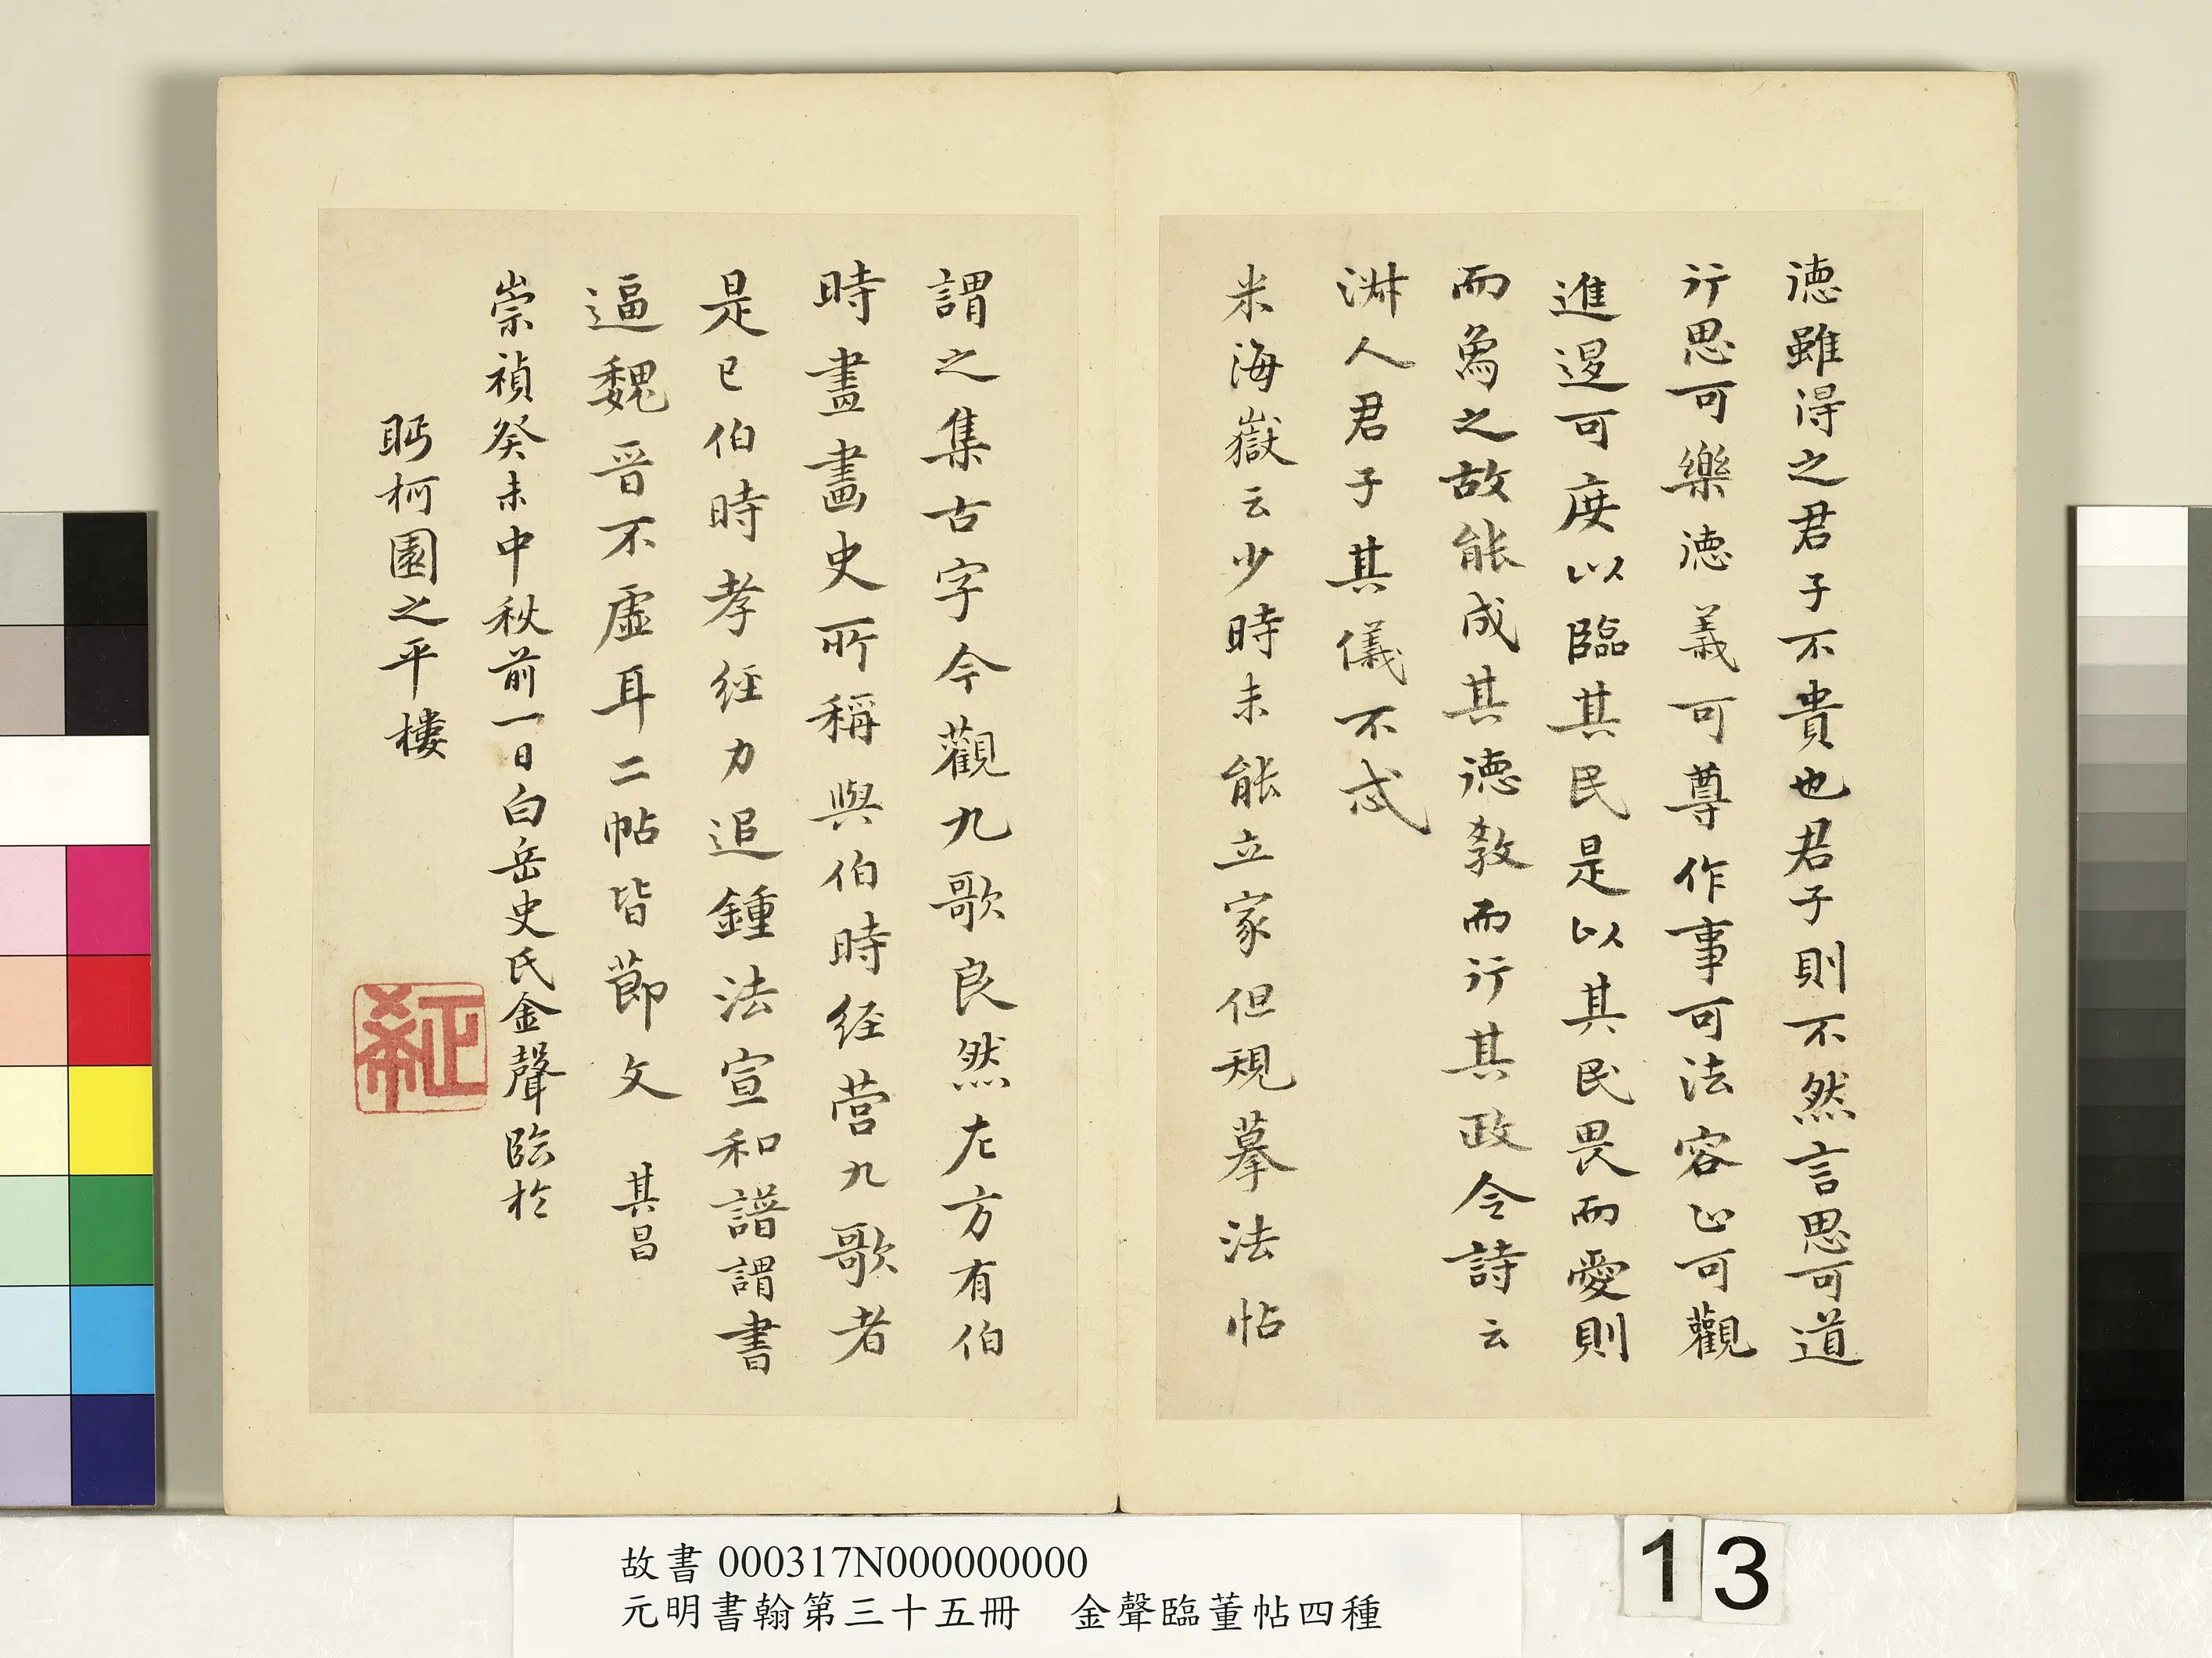 德雖得之君子不貴也君子則不然言思可道
行思可樂德義可尊作事可法容止可觀
進退可度以臨其民是以其民畏而愛則
而象之故能成其德教而行其政令詩云
淑人君子其儀不忒
米海嶽云少時未能立家但規摹法帖
謂之集古字今觀九歌良然左方有伯
時畫畫史所稱與伯時經營九歌者
是已伯時孝經力追鍾法宣和譜謂書
逼魏晉不虛耳二帖皆節文 其昌
崇禎癸未中秋前一日白岳史氏金聲臨於
眄柯園之平樓
故書 000317N000000000
元明書翰第三十五冊 金聲臨董帖四種
13